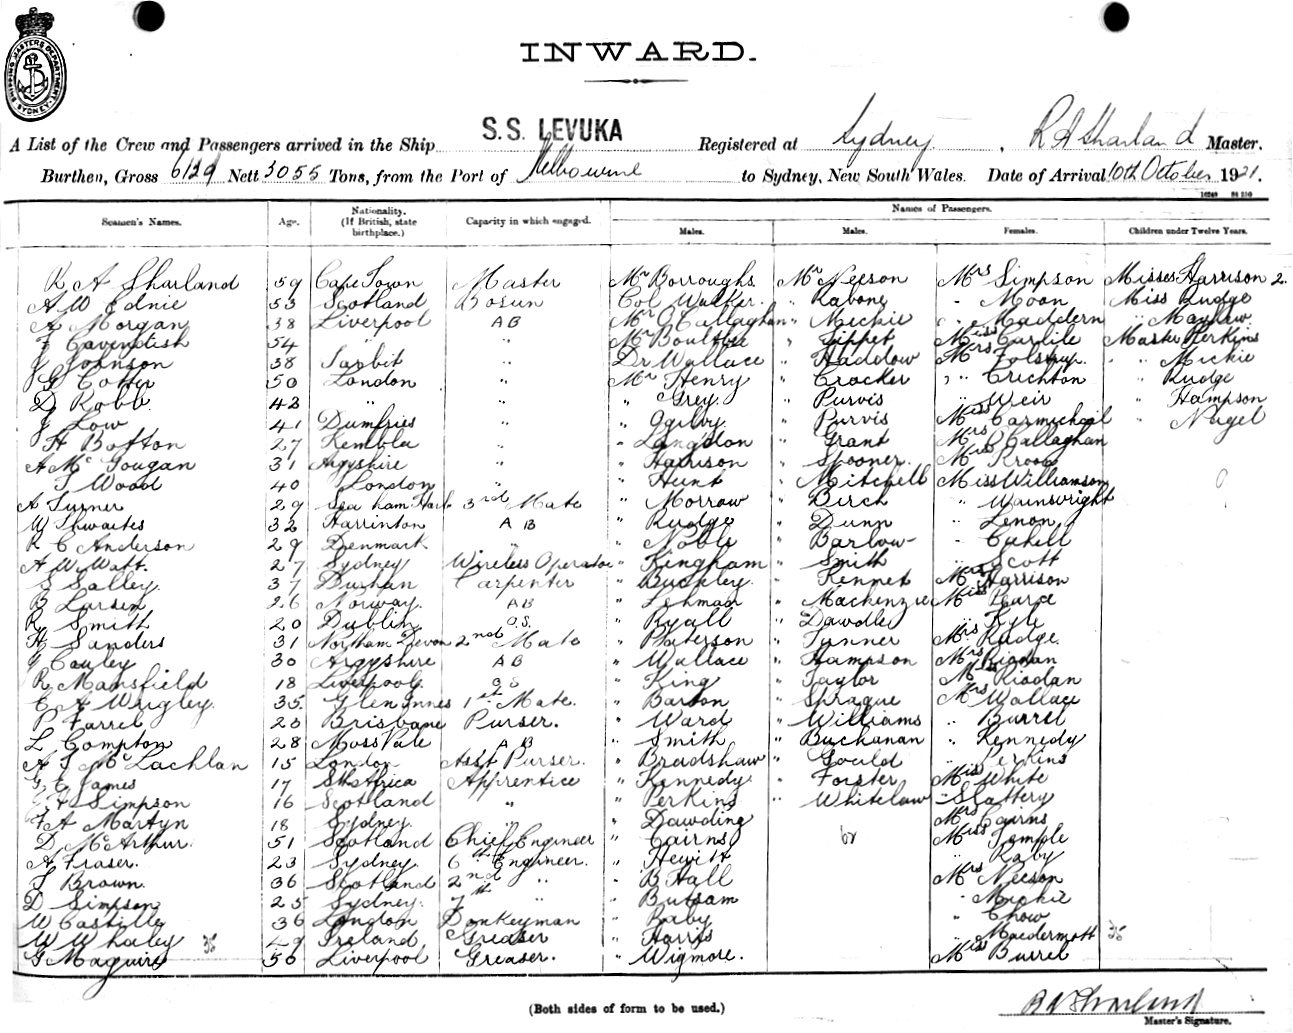 SHIPPING MASTERS DEPARTMENT SYDNEY
INWARD.
A List of the Crew and Passengers arrived in the Ship S.S. LEVUKA Registered at Sydney, R A Sharland Master,
Burthen, Gross 6129 Nett 3055 Tons, from the Port of Melbourne to Sydney, New South Wales. Date of Arrival 10th October 1921.
Seamen's Names. Age. Nationality. (If British, state birthplace.) Capacity in which engaged. Names of Passengers.
Males. Males. Females. Children under Twelve Years.
R A Sharland 59 Cape Town Master Mr Borroughs Mr Neeson Mrs Simpson Misses Harrison 2
A W Ednie 53 Scotland Bosun Col Walker " Rabone " Moon Miss Rudge
A Morgan 38 Liverpool AB Mr O'Callaghan " Mickie " Maddern " Mayhew
F Cavendish 54 " " Mr Boultbee " Tippet Miss Carlile Master Perkins
J Johnson 38 " Dr Wallace " Haddow Mrs " Mickie
G Cotter 50 London " Mr Henry " Crocker " Crichton " Rudge
D Robb 43 " " " Grey " Purvis " Weir " Hampson
J Low 41 Dumfries " " Ogilvy " Purvis Miss Carmichael " Nagel
H Bofton 27 Kembla " " Langdon " Grant Mrs O'Callaghan
A Mc Gougan 31 Argyshire " " Harrison " Spooner Mrs
T Wood 40 London " " Hunt " Mitchell Miss Williamson
A Turner 29 Sea ham Harb 3rd Mate " Morrow " Birch " Wainwright
W Thwaites 32 Harrinton AB " Rudge " Dunn " Lenon
R C Anderson 29 Denmark " " Noble " Barlow " Cahill
A W Watt 27 Sydney Wireless Operator " Kingham " Smith " Scott
S Salley 37 Durhan Carpenter " Buckley " Kennet Mrs Harrison
B Larsen 26 Norway AB " Lehman " Mackenzie Miss Pearce
R Smith 20 Dublin O.S. " Ryall " Dawdle " Kyle
H Sanders 31 Northam Devon 2nd Mate " Paterson " Tanner Mrs Rudge
G Cauley 30 Argyshire AB " Wallace " Hampson Mrs Riodan
R Mansfield 18 Liverpool OS " King " Taylor Miss Riodan
C A Wrigley 35 Glen Innes 1st Mate " Barton " Sprague Mrs Wallace
P Farrel 20 Brisbane Purser. " Ward " Williams " Burrel
L Compton 28 Moss Vale AB " Smith " Buchanan " Kennedy
A J McLachlan 15 London Asst Purser. " Bradshaw " Gould " Perkins
G E James 17 Sth Africa Apprentice " Kennedy " Forster Miss White
H Simpson 16 Scotland " " Perkins " Whitelaw " Slattery
F A Martyn 18 Sydney " " Dawding Mrs Cairns
D McArthur 51 Scotland Chief Engineer " Cairns Miss Temple
A Fraser 23 Sydney 6th Engineer. " Hewitt " Raby
J Brown 36 Scotland 2nd " " B Hall Mrs Neeson
D Simpson 25 Sydney 7th " " Butsam " Mickie
W Castille 36 London Donkeyman " Raby " Chow
W Whaley 49 Ireland Greaser " Harris " Macdermott
G Maguire 56 Liverpool Greaser. " Wigmore. Miss Burrel
(Both sides of form to be used.)
R A Sharland
Master's Signature.